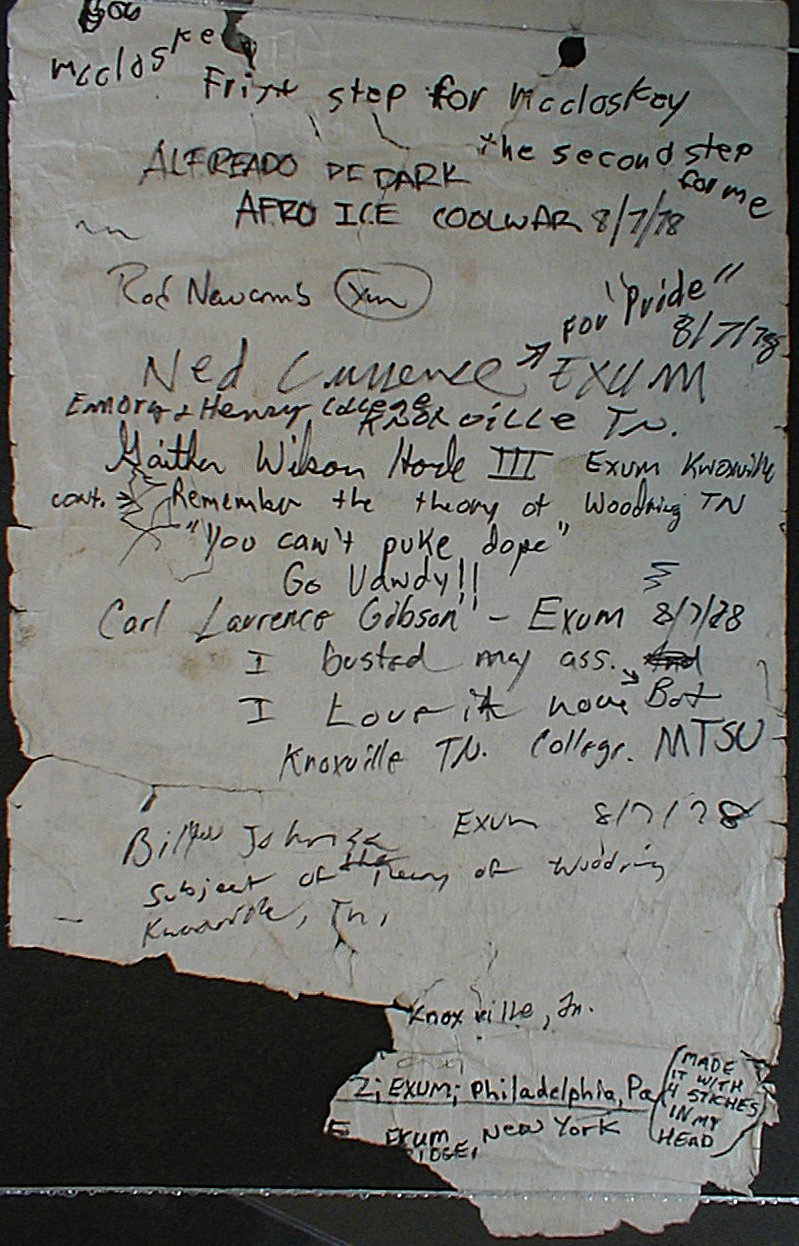 mccloske
Frist step for Mccloskey
the second step
for me
ALFREADO DE DARK
AFRO ICE COOLWAR 8/7/78
Rod Newcomb Exum
for "Pride"
8/7/78
Ned Currence EXUM
Emory & Henry College
KNOXVILLE TN.
Gaither Wilson Hode III Exum Knoxville
cont. Remember the theory of Woodring TN
"You can't puke dope"
Go Vandy!!
Carl Laurence Gibson - Exum 8/7/78
I busted my ass. But
I Love it now
Knoxville TN. College. MTSU
Johnson Exum 8/7/78
Subject of the theory of Woodring
Knoxville, Tn,
Knoxville, Tn.
Z; EXUM; Philadelphia, Pa
(MADE
IT WITH
4 STICHES
IN MY
HEAD)
Exum, New York
RIDGE,